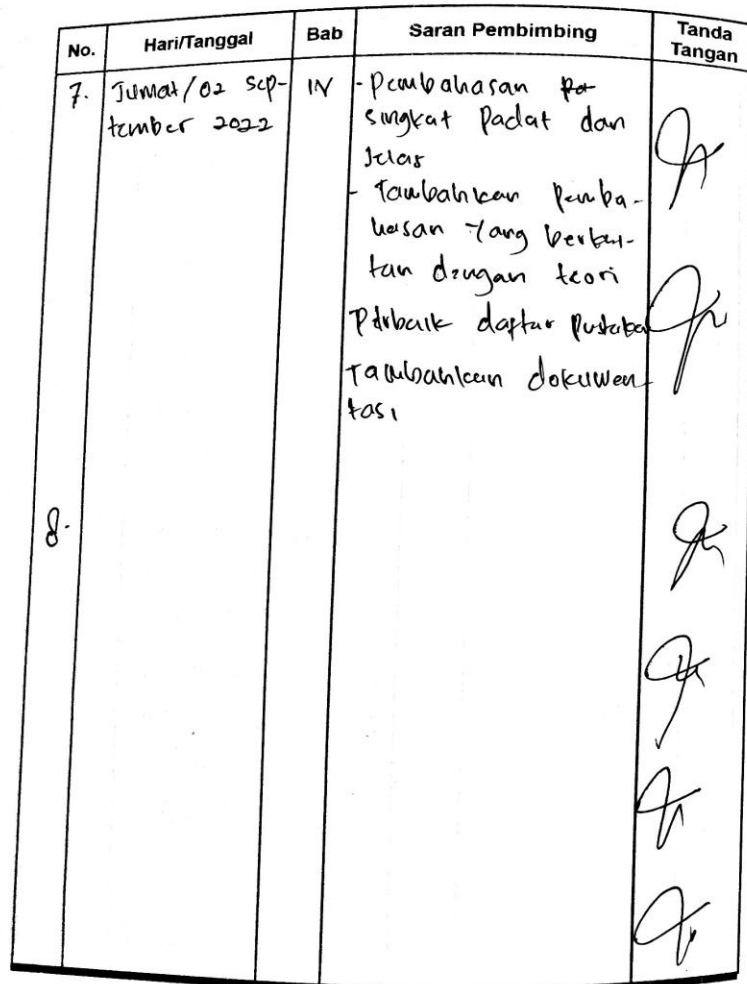 No. Hari/Tanggal Bab Saran Pembimbing Tanda Tangan
7. Jumat/02 Sep- IV - Pembahasan
tember 2022 singkat Padat dan
Jelas
- Tambahkan Pemba-
hasan Yang berkai-
tan dengan teori
Perbaik daftar Pustaka
Tambahkan dokumen
tasi
8.